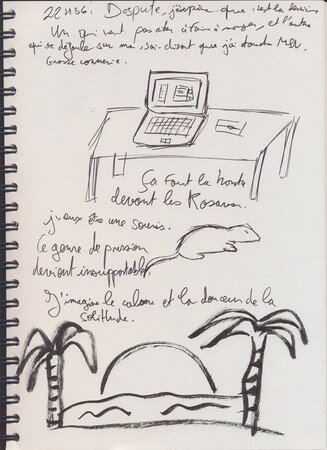 22H56. Dispute, j'espère que c'est la dernière
Un qui veut pas                          à manger, et l'autre
qui se défoule sur ma                 disant que j'ai
Grosse connerie.
Ça fout la honte
devant les
j'veux être une souris.
Ce genre de pression
devient insupportable.
J'imagine le calme et la douceur de la
solitude.